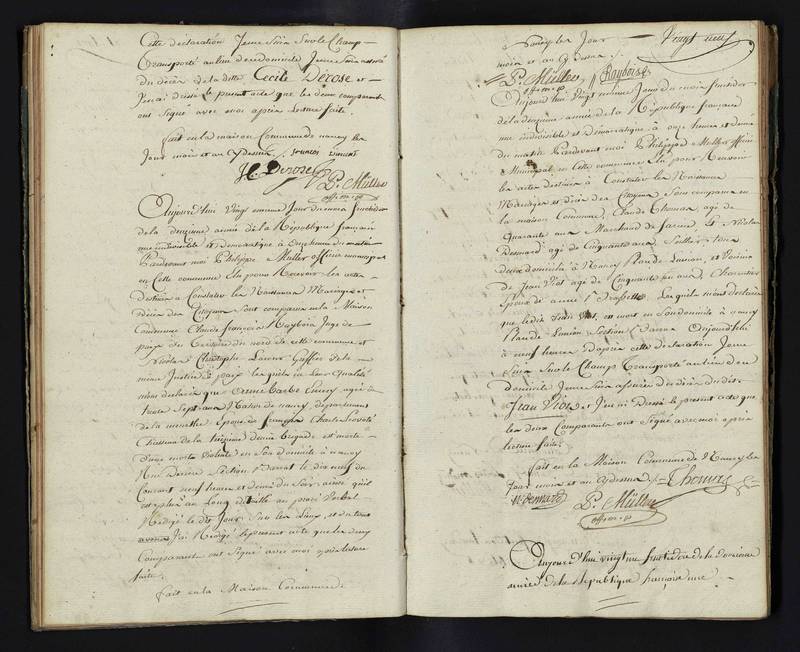 Cette déclaration Je me suis sur le Champ
Transporté au lieu de ce domicile Je me suis assuré
du décès de la ditte Cecile Dérose et
J'en ai dressé le present acte que les deux comparants
ont Signé avec moi après lecture faite.
fait en la maison Commune de nancy les
Jour mois et an cy dessus.
J.C. Derose P. Müller
off. m. p.
Aujourd'hui Vingt unieme Jour du mois fructidor
de la deuxieme année de la République française
une indivisible et Democratique à onze heures du matin
Pardevant moi Philippe Muller officier municipal
en Cette commune Elu pour Recevoir les actes
destinés a Constater les Naissances Mariages et
décès des Citoyens Sont comparus en la Maison
Commune Claude François Juge de
paix du du nord de cette commune et
Nicolas Christophe Greffier de la
même Justice de paix lesquels en Leur Qualité
mont declaré que Anne Barbe agée de
trente Sept ans Native de nancy département
de la meurthe Epouse de françois Charle
Chasseur de la demie Brigade est morte
d'une mort violente en Son domicile à nancy
Rue Derriere Section le dix neuf du
Courant neuf heures et demie du Soir ainsi qu'il
est plus au Long détaillé au procès Verbal
Rédigé le dit Jour Sur les Lieux et du tout
avons J'ai Rédigé le present acte que les deux
Comparants ont Signé avec moi après lecture
faite.
fait en la Maison Commune de
nancy les Jour
mois et an cy dessus
Vingt neuf
P. Müller
off. m. p.
Aujourd'hui Vingt unieme Jour du mois fructidor
de la deuxieme année de la République française
une indivisible et Democratique à onze heures et demie
du matin Pardevant moi Philippe Muller officier
Municipal en Cette Commune Elu pour Recevoir
les actes destinés à Constater les Naissances
Mariages et décès des Citoyens Sont comparus en
la maison Commune, Claude Thomas agé de
Quarante ans Marchand de farine, et Nicolas
Demard agé de Cinquante ans, Sellier tous
deux domiciliés à Nancy Place et Voisins
de Jean agé de Cinquante ans Charretier
Epoux de Lesquels m'ont declaré
que ledit Jean est mort en Son domicile à nancy
Place Section Aujourd'hui
à neuf heures D'après cette déclaration Je me
Suis Sur le Champ transporté au lieu de ce
domicile Je me Suis assuré du décès du dit
Jean et J'en ai Dressé le present acte que
les deux Comparants ont Signé avec moi après
lecture faite.
fait en la Maison Commune de Nancy les
Jour mois et an cy dessus Thomas
N. Demard P. Müller
off. m. p.
Aujourd'hui vingt un fructidor de la deuxieme
année de la République françoise une